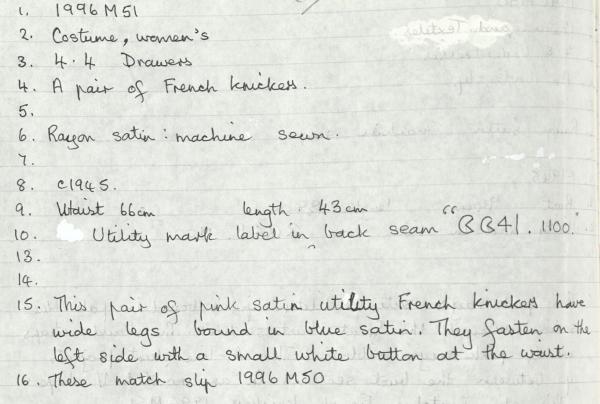 1. 1996 M51
2. Costume, women's
3. 4.4 Drawers
4. A pair of French knickers.
5.
6. Rayon satin: machine sewn.
7.
8. c1945.
9. Waist 66cm length. 43cm
10. Utility mark label in back seam "CC41. 1100."
13.
14.
15. This pair of pink satin utility French knickers have
wide legs bound in blue satin. They fasten on the
left side with a small white button at the waist.
16. These match slip 1996 M50